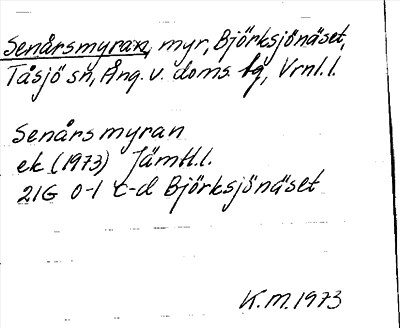 Senårsmyran, myr, Björksjönäset,
Tåsjö sn, Ång. v. doms. tg, Vrnl. l.
Senårsmyran
ek (1973) Jämtl. l.
21G 0-1 c-d Björksjönäset
K.M. 1973